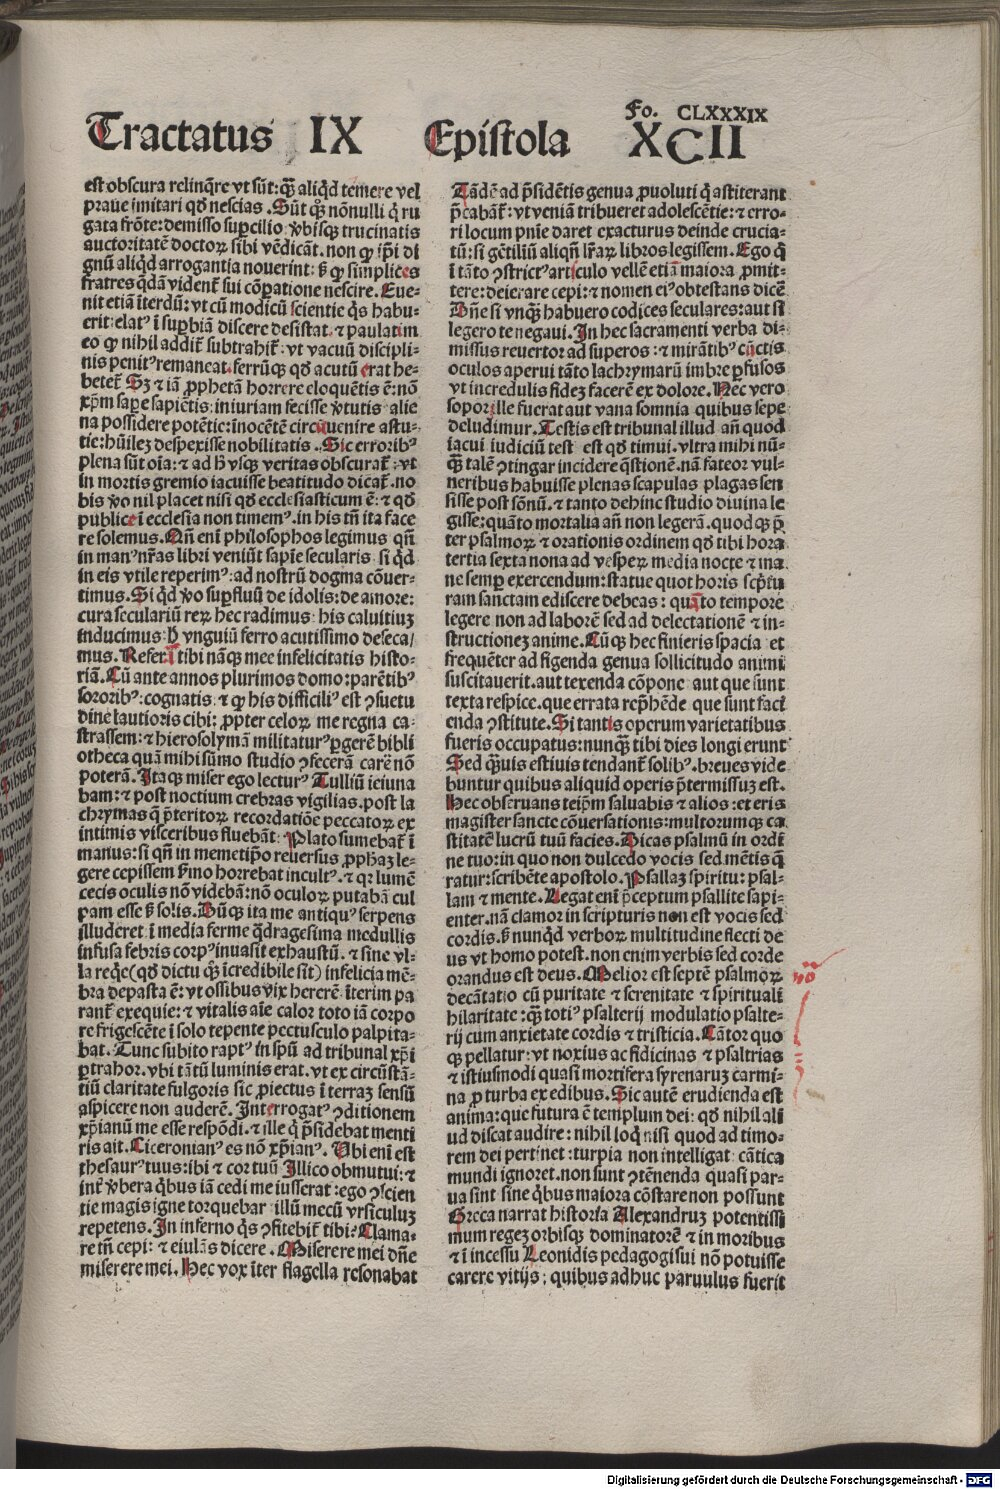 Fo. CLXXXIX
Tractatus IX Epistola XCII
est obscura relinq̄re vt sūt: q̄ꝫ aliq̇d temere vel
praue imitari qđ nescias. Sūt qꝫ nōnulli q̇ ru
gata frōte: demisso suꝑcilio ꝟbisqꝫ trucinatis
auctoritatē doctoꝝ sibi vēdicāt. non ꝙ ip̄i di
gnū aliq̇d arrogantia nouerint: sꝫ ꝙ simplices
fratres q̄dā vident̄ sui cōꝑatione nescire. Eue-
nit etiā īterdū: vt cū modicū scientie q̇s habu-
erit: elatꝰ ī suꝑbiā discere desistat. ⁊ paulatim
eo ꝙ nihil addit̄ subtrahit̄: vt vacuū discipli-
nis penitꝰ remaneat. ferrūqꝫ qđ acutū erat he-
betet̄ Sꝫ ⁊ iā ꝓphetā horrere eloquētis ē: nō
xp̄m saꝑe sapiētis: iniuriam fecisse ꝟtutis alie
na possidere potētie: inocētē circūuenire astu-
tie: hūilez despexisse nobilitatis. Sic erroribꝰ
plena sūt oīa: ⁊ ad h̄ vsqꝫ veritas obscurat̄: vt
in mortis gremio iacuisse beatitudo dicat̄. no
bis ꝟo nil placet nisi qđ ecclesiasticum ē: ⁊ qđ
publice ī ecclesia non timemꝰ. in his tn̄ ita face
re solemus. Qn̄ enī philosophos legimus qn̄
in manꝰ nr̄as libri veniūt sapīe secularis. si q̇d
in eis vtile reperimꝰ: ad nostrū dogma cōuer-
timus. Si q̇d ꝟo suꝑfluū de idolis: de amore:
cura seculariū reꝝ hec radimus: his caluitiuꝫ
inducimus: h̄ vnguiū ferro acutissimo deseca/
mus. Referā tibi nāqꝫ mee infelicitatis histo-
riā. Cū ante annos plurimos domo: parētibꝰ
sororibꝰ: cognatis: ⁊ ꝙ his difficiliꝰ est ꝯsuetu
dine lautioris cibi: ꝓpter celoꝝ me regna ca-
strassem: ⁊ hierosolymā militaturꝰ ꝑgerē bibli
otheca quā mihi sūmo studio ꝯfecerā carē nō
poterā. Itaqꝫ miser ego lecturꝰ Tulliū ieiuna
bam: ⁊ post noctium crebras vigilias. post la
chrymas q̄ p̄teritoꝝ recordatiōe peccatoꝝ ex
intimis visceribus fluebāt: Plato sumebat̄ ī
manus: si qn̄ in memetip̄o reuersus ꝓph̄aꝫ le-
gere cepissem ẜmo horrebat incultꝰ. ⁊ qꝛ lumē
cecis oculis nō videbā: nō oculoꝝ putabā cul
pam esse sꝫ solis. Dūqꝫ ita me antiquꝰ serpens
illuderet ī media ferme q̄dragesima medullis
infusa febris corpꝰ inuasit exhaustū. ⁊ sine vl-
la req̇e (qđ dictu q̄ꝫ īcredibile sit) infelicia mē-
bra depasta ē: vt ossibus vix hererē: īterim pa
rant̄ exequie: ⁊ vitalis aīe calor toto iā corpo
re frigescēte ī solo tepente pectusculo palpita-
bat. Tunc subito raptꝰ in sp̄u ad tribunal xp̄i
ꝑtrahor. vbi tātū luminis erat. vt ex circūstā-
tiū claritate fulgoris sic ꝓiectus ī terraꝫ sensū
aspicere non auderē. Interrogatꝰ ꝯditionem
xp̄ianū me esse respōdi. ⁊ ille q̇ p̄sidebat menti
ris ait. Ciceronianꝰ es nō xp̄ianꝰ. Vbi enī est
thesaurꝰ tuus: ibi ⁊ cor tuū Illico obmutui: ⁊
int̄ ꝟbera q̇bus iā cedi me iusserat: ego ꝯscien
tie magis igne torquebar illū mecū vrsiculuꝫ
repetens. In inferno q̇s ꝯfitebit̄ tibi? Clama-
re tn̄ cepi: ⁊ eiulās dicere. Miserere mei dn̄e
miserere mei. Hec vox īter flagella resonabat
Tādē ad p̄sidētis genua ꝓuoluti q̇ astiterant
p̄cabāt̄: vt veniā tribueret adolescētie: ⁊ erro-
ri locum pn̄ie daret exacturus deinde crucia-
tū: si gētiliū aliqn̄ lr̄aꝝ libros legissem. Ego q̇
ī tāto ꝯstrictꝰ articulo vellē etiā maiora ꝓmit-
tere: deierare cepi: ⁊ nomen eiꝰ obtestans dicē
Dn̄e si vnq̄ꝫ habuero codices seculares: aut si
legero te negaui. In hec sacramenti verba di-
missus reuertor ad superos: ⁊ mirātibꝰ cūctis
oculos aperui tāto lachrymarū imbre ꝑfusos
vt incredulis fidez facerē ex dolore. Nec vero
sopor ille fuerat aut vana somnia quibus sepe
deludimur. Testis est tribunal illud añ quod
iacui iudiciū test est qđ timui. vltra mihi nū-
q̄ꝫ talē ꝯtingat incidere q̄stionē. nā fateor vul-
neribus habuisse plenas scapulas plagas sen
sisse post sōnū. ⁊ tanto dehinc studio diuina le
gisse: quāto mortalia añ non legerā. quodqꝫ p̄
ter psalmoꝝ ⁊ orationis ordinem qđ tibi hora
tertia sexta nona ad vesꝑeꝝ media nocte ⁊ ma
ne semꝑ exercendum: statue quot horis scp̄tu
ram sanctam ediscere debeas: quāto tempore
legere non ad laborē sed ad delectationē ⁊ in-
structioneꝫ anime. Cūqꝫ hec finieris spacia et
frequēter ad figenda genua sollicitudo animi
suscitauerit. aut texenda cōpone aut que sunt
texta respice. que errata rep̄hēde que sunt faci
enda ꝯstitute. Si tantis operum varietatibus
fueris occupatus: nunq̄ꝫ tibi dies longi erunt
Sed q̄ꝫuis estiuis tendant̄ solibꝰ. breues vide
buntur quibus aliquid operis p̄termissuꝫ est.
Hec obseruans teip̄m saluabis ⁊ alios: et eris
magister sancte cōuersationis: multorumqꝫ ca
stitatē lucrū tuū facies. Dicas psalmū in ordī
ne tuo: in quo non dulcedo vocis sed mētis q̄
ratur: scribēte apostolo. Psallaꝫ spiritu: psal-
lam ⁊ mente. Legat enī p̄ceptum psallite sapi-
enter. nā clamor in scripturis non est vocis sed
cordis. sꝫ nunq̇d verboꝝ multitudine flecti de
us vt homo potest. non enim verbis sed corde
orandus est deus. Melior est septē psalmoꝝ
decātatio cū puritate ⁊ serenitate ⁊ spirituali
hilaritate: q̄ꝫ totiꝰ psalterij modulatio psalte-
rij cum anxietate cordis ⁊ tristicia. Cātor quo
qꝫ pellatur: vt noxius ac fidicinas ⁊ psaltrias
⁊ istiusmodi quasi mortifera syrenaruꝫ carmi-
na ꝓturba ex edibus. Sic autē erudienda est
anima: que futura ē templum dei: qđ nihil ali
ud discat audire: nihil loq̇ nisi quod ad timo-
rem dei pertinet: turpia non intelligat cātica
mundi ignoret. non sunt ꝯtēnenda quasi par-
ua sint sine q̇bus maiora cōstare non possunt
Greca narrat historia Alexandruꝫ potentissi
mum regeꝫ orbisqꝫ dominatorē ⁊ in moribus
⁊ ī incessu Leonidis pedagogi sui nō potuisse
carere vitijs: quibus adhuc paruulus fuerit
Digitalisierung gefördert durch die Deutsche Forschungsgemeinschaft - DFG